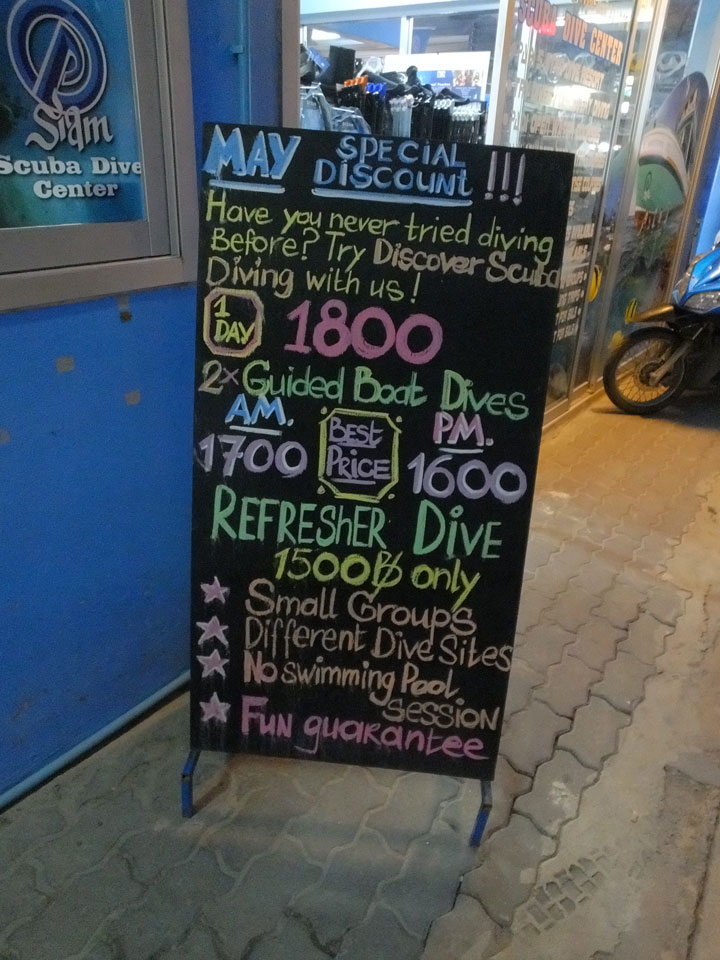 Siam
Scuba Dive
Center
SCUBA DIVE CENTER
MAY SPECIAL
DISCOUNT !!!
Have you never tried diving
Before? Try Discover Scuba
Diving with us!
1
DAY 1800
2x Guided Boat Dives
AM. PM.
1700 BEST
PRICE 1600
REFRESHER DIVE
1500฿ only
Small Groups
Different Dive Sites
No swimming Pool
SESSION
FUN guarantee